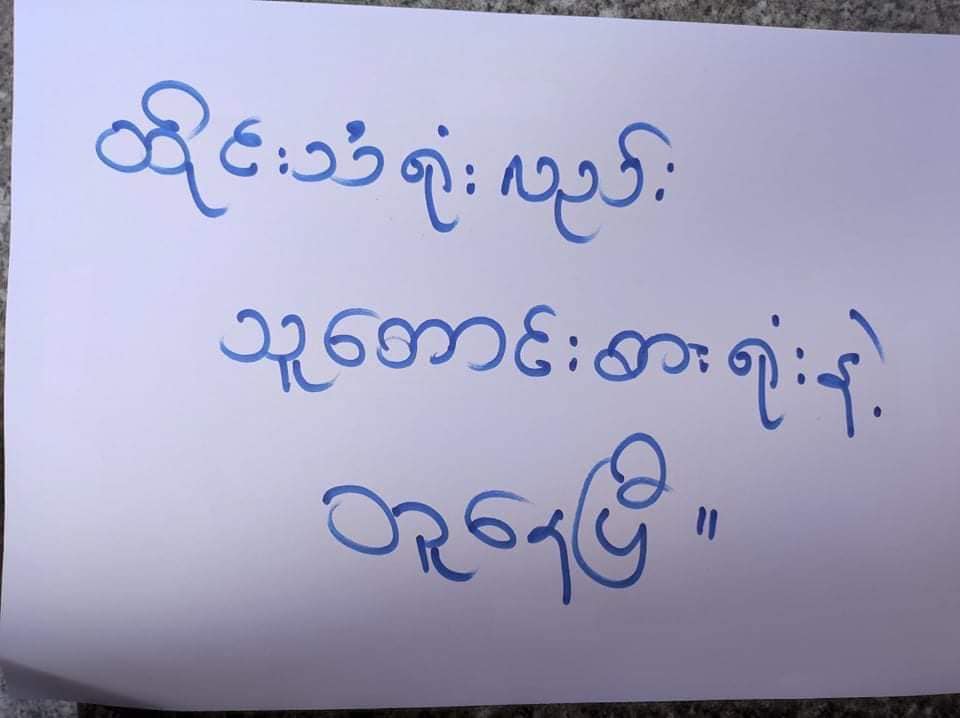 ထိုင်းသံရုံးလည်း
သူတောင်းစားရုံးနဲ့
တူနေပြီ။